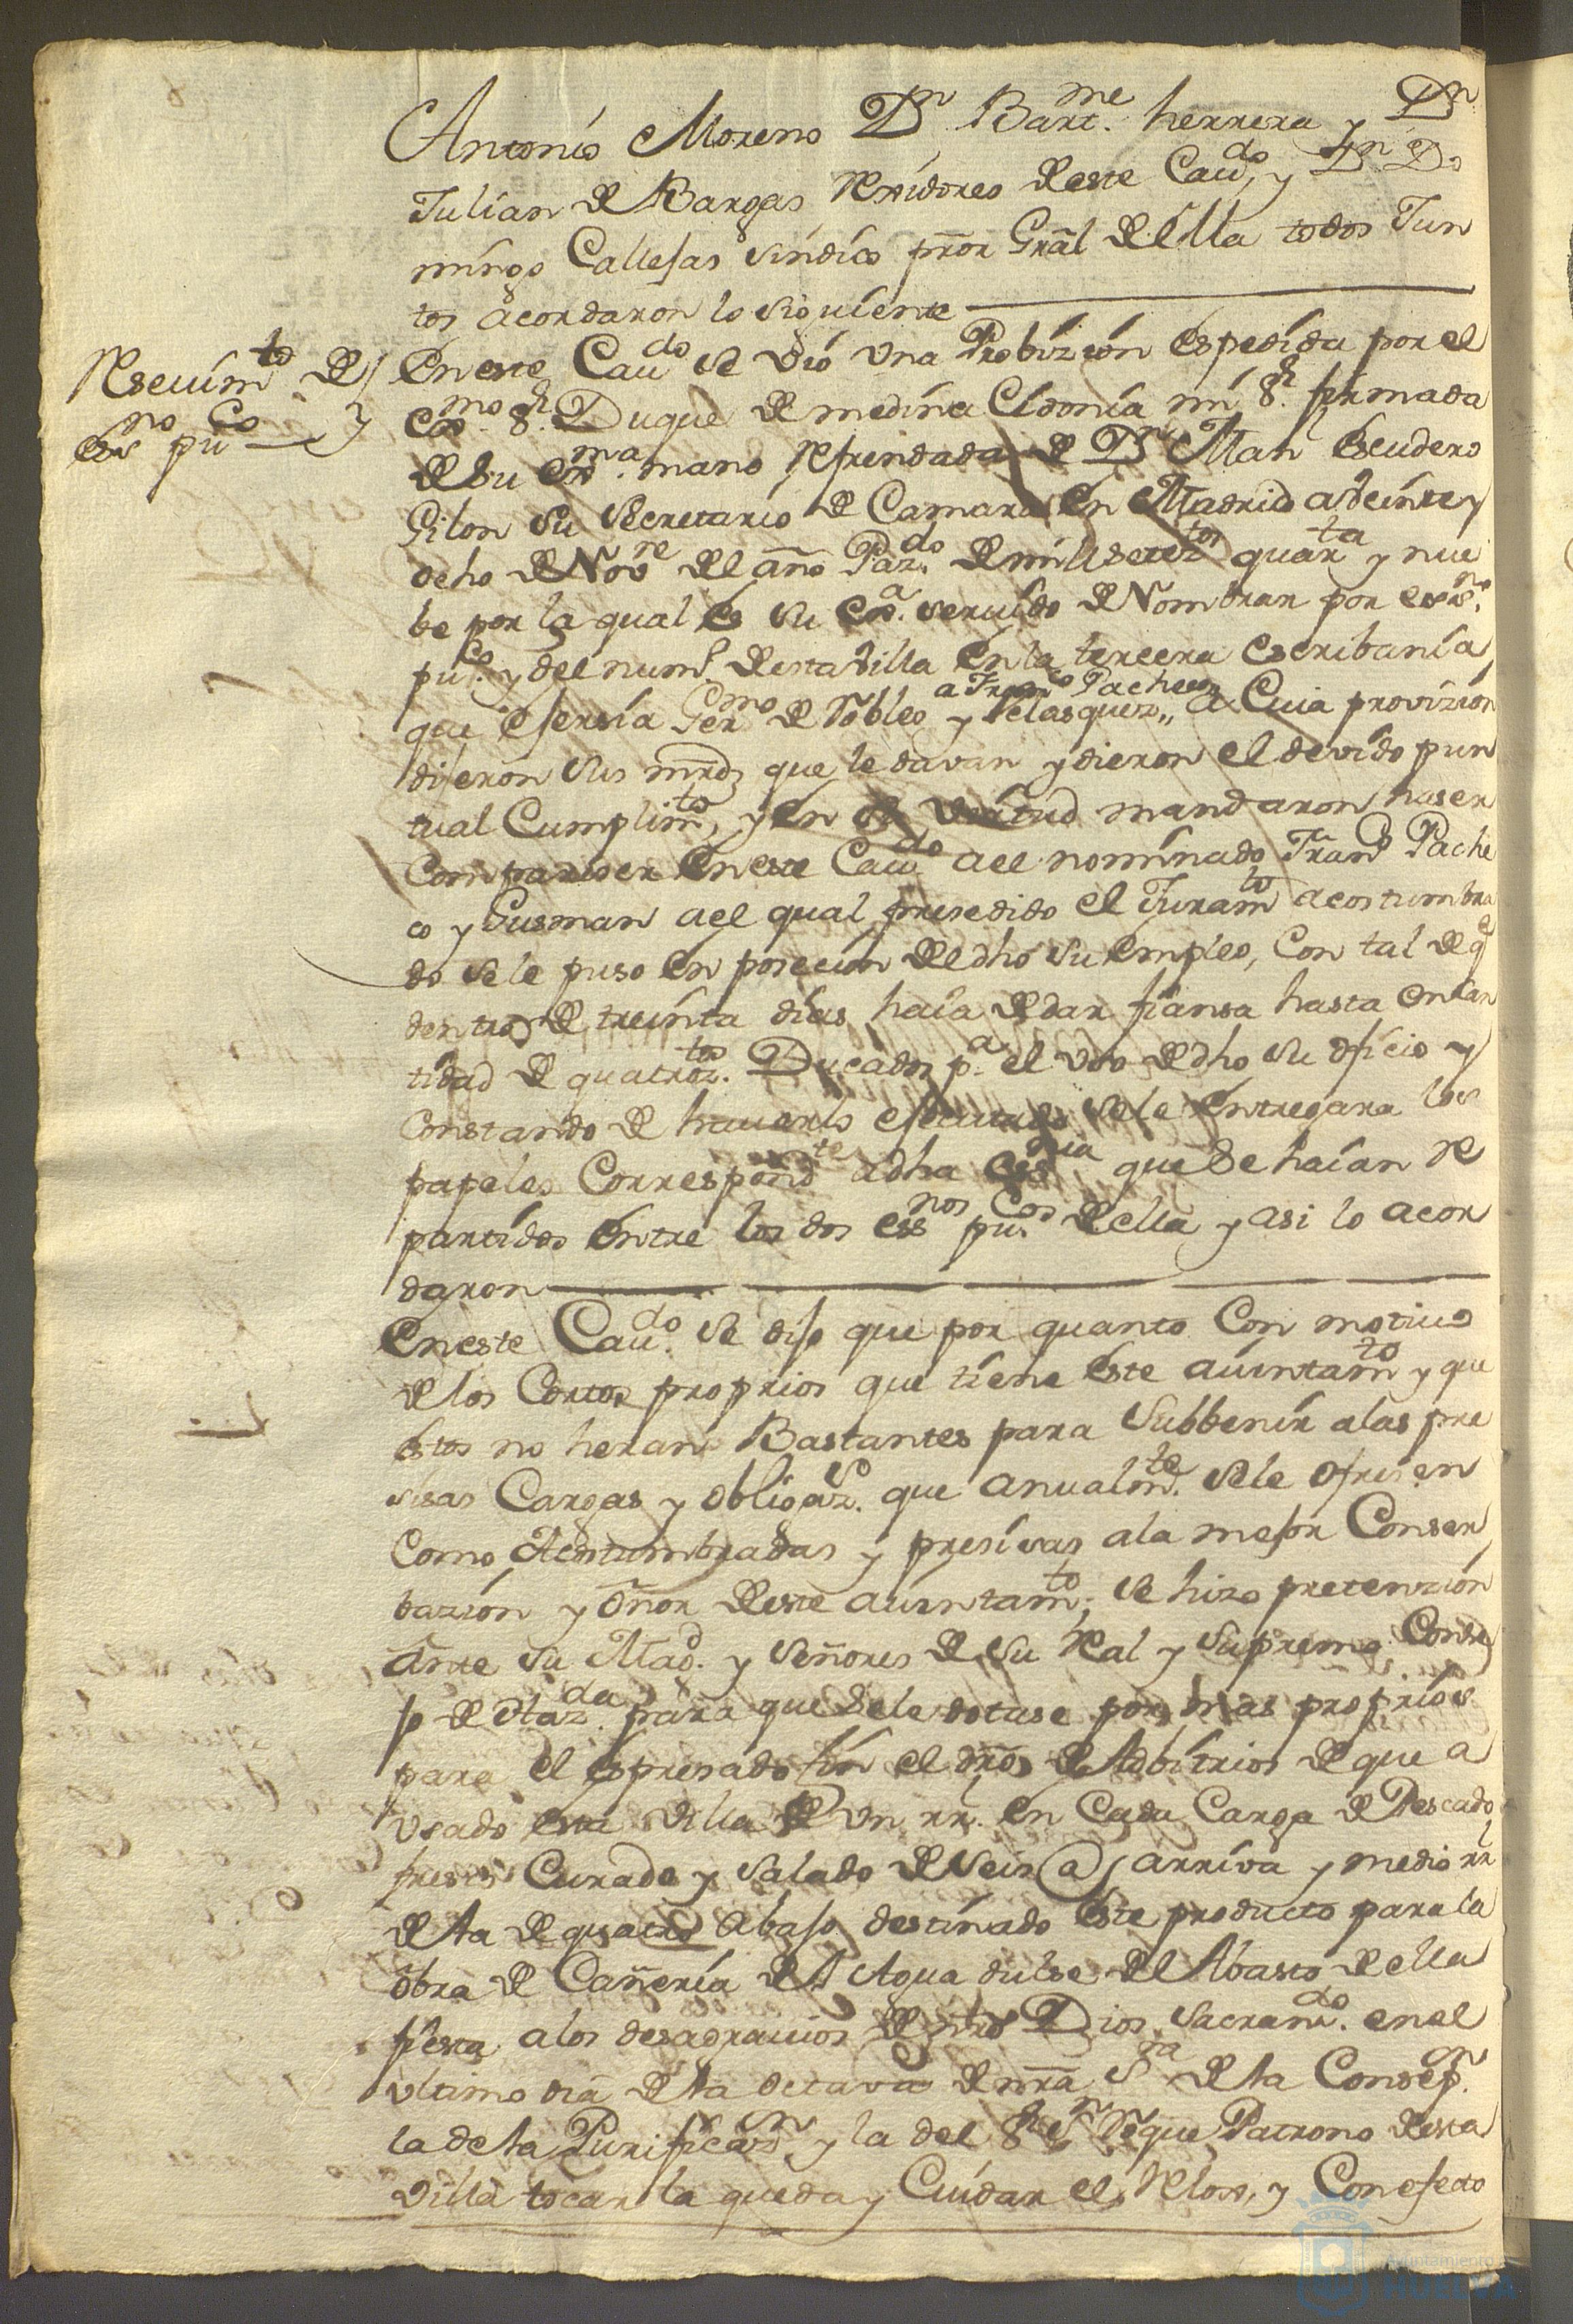 Antonio Moreno Dn Bartme herrera y Dn
Julian de Bargas Rexidores deste Cavdo, y Dn Do
mingo Callejas sindico pror Gral de ella todos Jun
tos acordaron lo siguiente
Reseuimto de
essno puco
En este Cavdo se vio una Probizion espedida por el
Exmo Sr Duque de medina Cidonia mi Sr. firmada
de su exma mano Refrendada de Dn Man Escudero
Gilon su Secretario de Camara en Madrid a veinte y
ocho de Novre del año Pazdo de mill setezos quarta y nue
be por la qual es su exa. servido de Nombrar por essno
puco y del numo desta villa en la tercera escribania
que ejersia Germo de Robles y Velasquez,, a Franco Pacheco a Cuia provizion
dijeron sus mrds que le davan y dieron el devido pun
tual Cumplimto, y en su virtud mandaron haser
Compareser en este Cavdo a el nominado Frano Pache
co y Gusman a el qual presedido el Juramto acostumbra
do se le puso en posecion de dho su empleo, Con tal de q
dentro de treinta dias haia de dar fiansa hasta en can
tidad de quatrozos Ducados pa el uso de dho su oficio y
Constando de haverlo ejecutado se le entregara los
papeles Correspondtes a dha essnia que se haian Re
partidos entre los dos essnos pucos de ella y asi lo acor
daron
En este Cavdo se dijo que por quanto Con motivo
de los Cortos proprios que tiene este aiuntamto y que
estos no heran Bastantes para Subbenir a las pre
sisas Cargas y obligazs. que anualmte. se le ofresen
Como Acostumbradas y presisas a la mejor Conser
bazion y onor deste aiuntamto; se hizo pretenzion
ante su Magd. y Señores de su Real y Supremo Conse
jo de Hazda para que se le dotase por mas proprios
para el espresado fin el dro de Adbitrios de que a
usado esta villa de un rrl. en Cada Carga de Pescado
fresco Curado y salado de seis @ arriva y medio rrl
de la de quatro abajo destinado este producto para la
obra de Cañeria de el Agua dulse de el Abasto de ella
fiesta a los desagravios de ntro Dios Sacramdo. en el
ultimo dia de la octava de nra Sra de la Consepn.
la de la Purificazn y la del Sr Sn Roque Patrono desta
villa tocar la queda y Cuidar el Relox, y Con efecto
Ayuntamiento
HUELVA